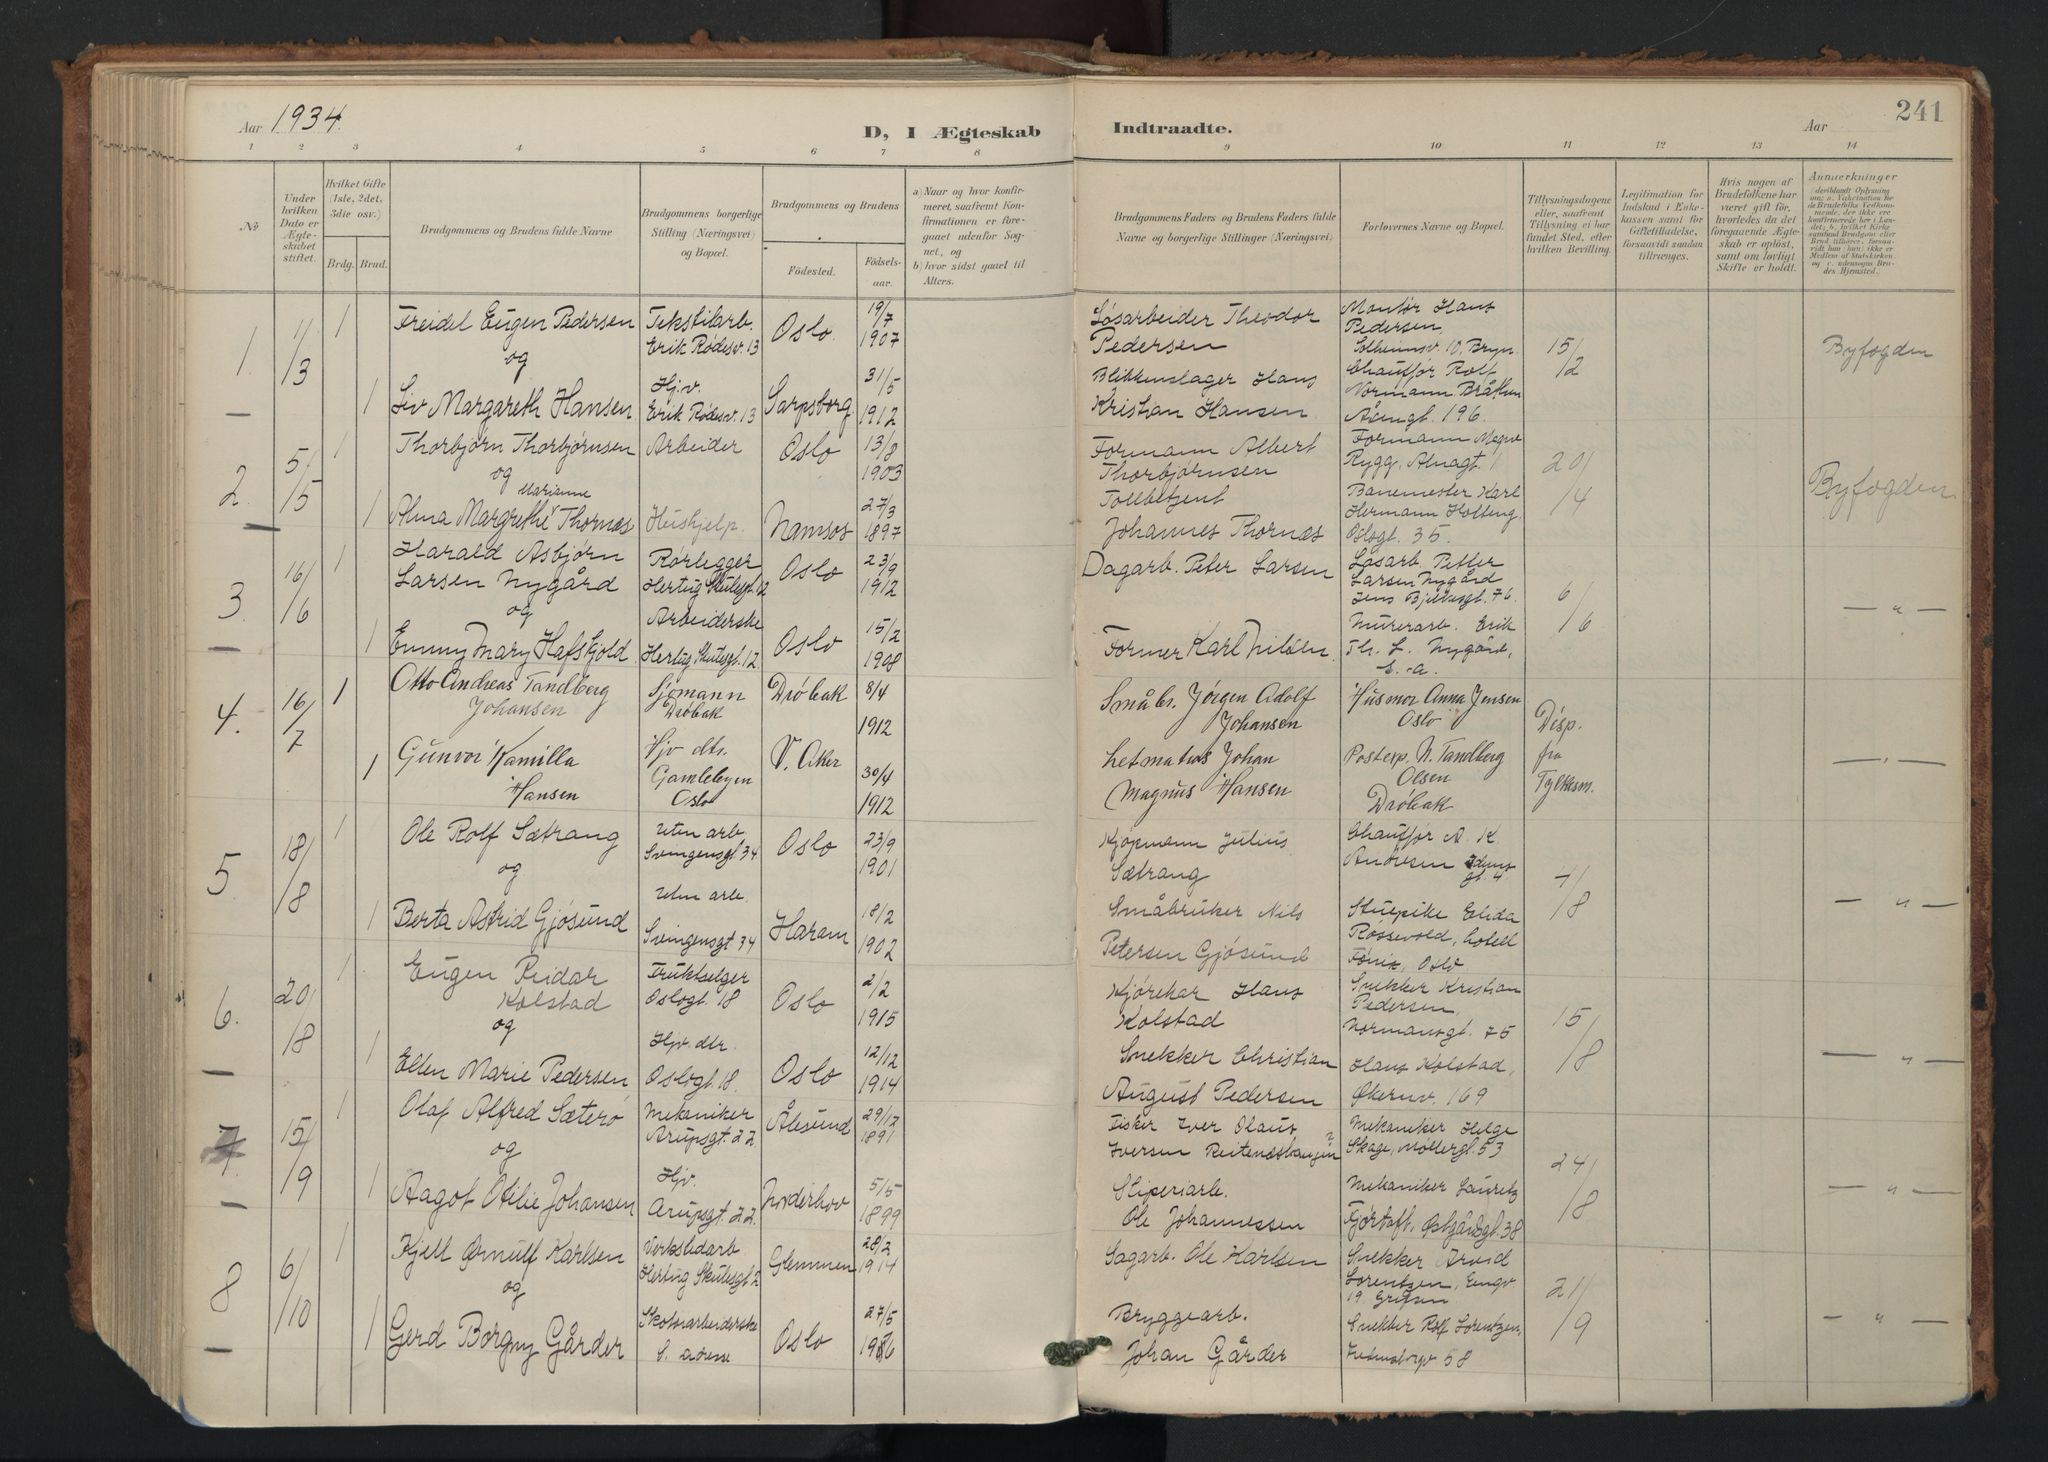 Aar 1934.
D, I Ægteskab
Indtraadte.
Aar
241
1 2 3 4 5 6 7 8 9 10 11 12 13 14
No
Under hvilken Dato er Ægteskabet stiftet.
Hvilket Gifte (1ste, 2det, 3die osv.)
Brdg. Brud.
Brudgommens og Brudens fulde Navne
Brudgommens borgerlige Stilling (Næringsvei) og Bopæl.
Brudgommens og Brudens
Fødested.
Fødselsaar.
a) Naar og hvor konfirmeret, saafremt Konfirmationen er foregaaet udenfor Sognet, og
b) hvor sidst gaaet til Alters.
Brudgommens Faders og Brudens Faders fulde Navne og borgerlige Stillinger (Næringsvei)
Forlovernes Navne og Bopæl.
Tillysningsdagene eller, saafremt Tillysning ei har fundet Sted, efter hvilken Bevilling.
Legitimation for Indskud i Enkekassen samt for Giftetilladelse, forsaavidt saadan tiltrænges.
Hvis nogen af Brudefolkene har været gift før, hvorledes da det foregaaende Ægteskab er opløst, samt om lovligt Skifte er holdt.
Anmerkninger
1. 11/3 1 Freidel Eugen Pedersen Tekstilarb. Erik Rødesv. 13 Oslo. 19/7 1907 Løsarbeider Theodor Pedersen Montør Hans Pedersen, Solheimsv. 10, Bryn. 15/2 Byfogden
og
1 Liv Margareth Hansen Hjv. Erik Rødesv. 13 Sarpsborg. 31/5 1912 Blikkenslager Hans Kristian Hansen Chauffør Rolf Normann Bråthen Åsengt. 196.
2. 5/5 1 Thorbjørn Thorbjørnsen Arbeider Oslo 13/8 1903 Formann Albert Thorbjørnsen Formann Magne Rygg, Alnagt. 1 20/4 Byfogden
og
1 Alma Margrethe Marianne Thornæs Hushjelp. Namsos 27/3 1897 Tollbetjent Johannes Thornæs Banemester Karl Hermann Holteng, Oslogt. 35.
3. 16/6 1 Harald Asbjørn Larsen Nygård Rørlegger Hertug Skulesgt. 12 Oslo 23/9 1912 Dagarb. Peter Larsen Løsarb. Petter Larsen Nygård Jens Bjelkesgt. 76. 6/6 — " —
og
1 Emmy Mary Hafskjold Arbeiderske Hertug Skulesgt. 12. Oslo 15/2 1908 Former Karl Nilsen Murerarb. Erik Th. L. Nygård, E. a.
4. 16/7 1 Otto Andreas Tandberg Johansen Sjømann Drøbak Drøbak 8/4 1912 Småbr. Jørgen Adolf Johansen Husmor Anna Jensen Oslo Disp. fra Fylkesm. — " —
1 Gunvor Kamilla Hansen Hjv. dtr. Gamlebyen Oslo V. Aker 30/4 1912 Johan Magnus Hansen Postexp. N. Tandberg Olsen Drøbak
5. 18/8 1 Ole Rolf Sætrang Uten arb. Svingensgt. 34 Oslo 23/9 1901 Kjøpmann Julius Sætrang Chauffør A. K. Andresen gt. 4. 7/8 — " —
og
1 Berta Astrid Gjøsund Uten arb. Svingensgt. 34 Haram 18/2 1902 Småbruker Nils Petersen Gjøsund Stuepike Elida Rossevold, hotell Fønix, Oslo
6. 20/8 1 Eugen Reidar Kolstad Fruktselger Oslogt. 18 Oslo 2/2 1915 Kjørekar Hans Kolstad Snekker Kristian Pedersen, Normansgt. 75 15/8 — " —
og
1 Ellen Marie Pedersen Hjv. dtr. Oslogt. 18. Oslo 12/12 1914 Snekker Christian August Pedersen Hans Kolstad, Økernv. 169
7. 15/9 1 Olaf Alfred Sæterø Mekaniker Arupsgt. 22 Ålesund 29/12 1891 Fisker Iver Olaus Iversen Mekaniker Helge Skage, Møllergt. 53 24/8 — " —
og
1 Aagot Otilie Johansen Hjv. Arupsgt. 22. Norderhov 5/5 1899 Sliperiarb. Ole Johannessen Mekaniker Lauretz Fjørtoft, Østgårdsgt. 38
8 6/10 1 Kjell Ørnulf Karlsen Verkstedarb. Hertug Skulesgt. 2 Glemmen 28/2 1914 Sagarb. Ole Karlsen Snekker Arvid Lorentzen, Engv. 19. Grefsen 21/9 — " —
og
1 Gerd Borgny Gårder Skotøiarbeiderske S. adresse Oslo 27/5 1916 Bryggearb. Johan Gårder Snekker Rolf Lorentzen, 58